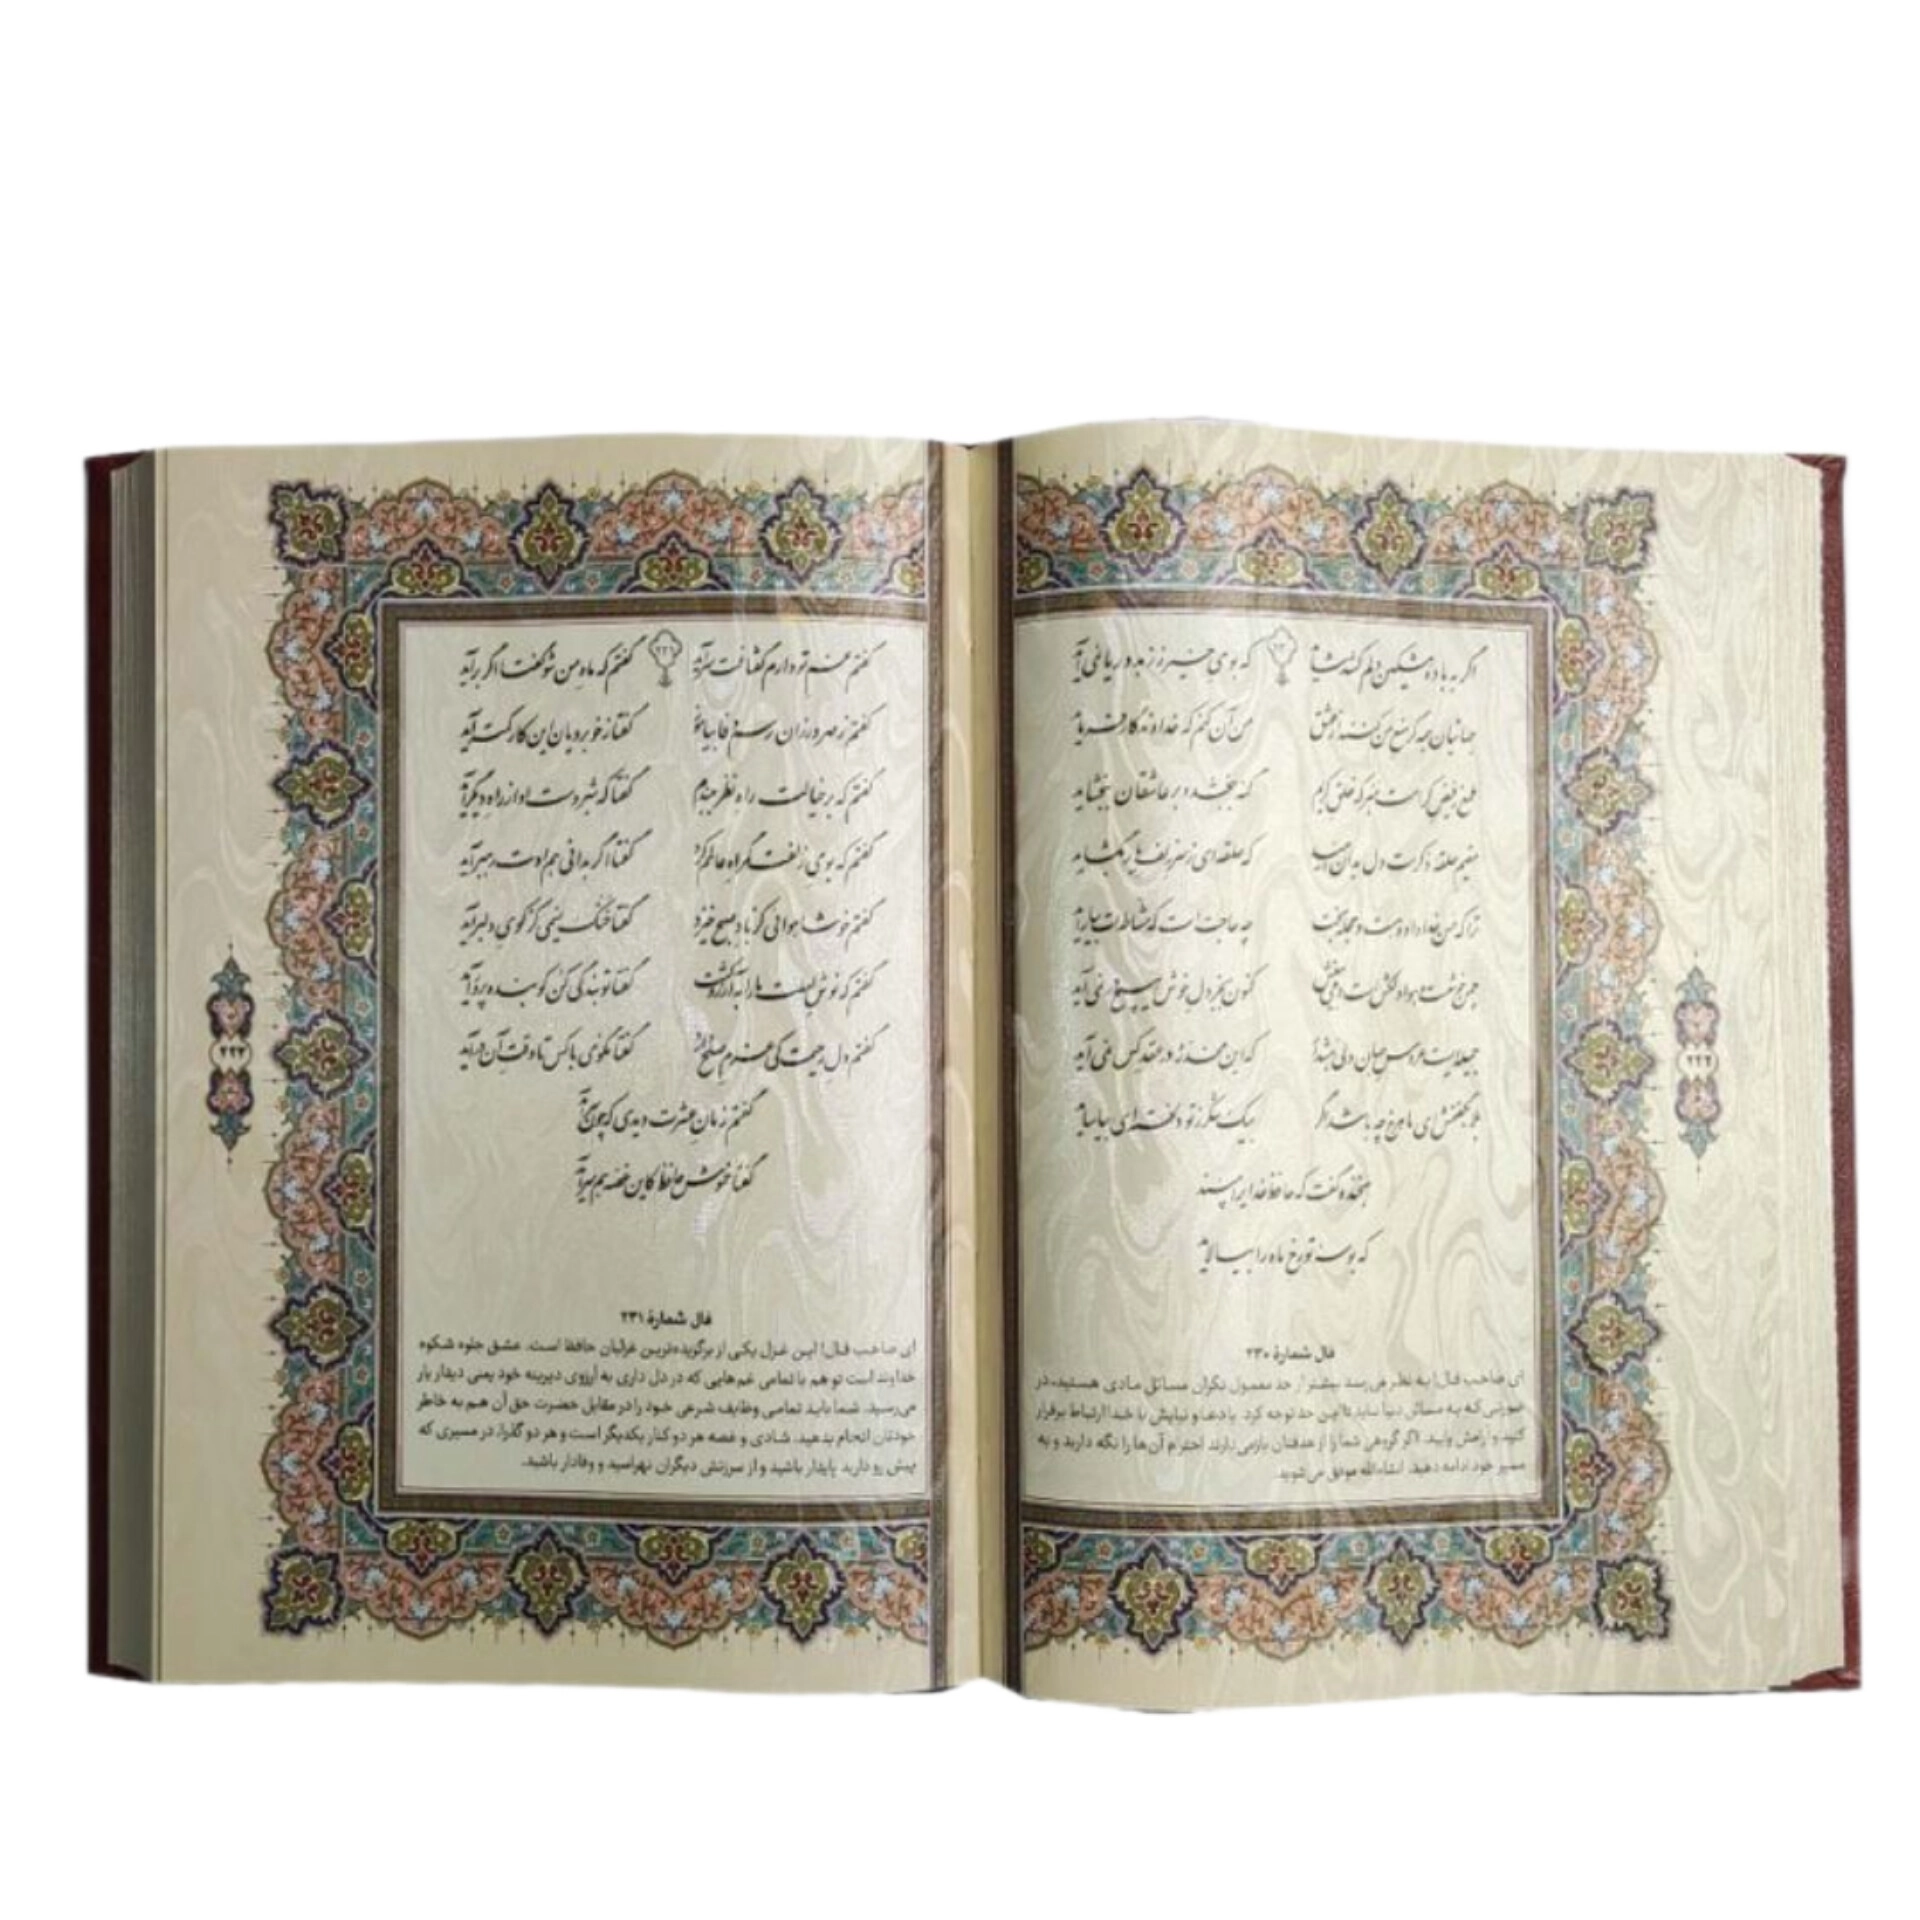 ۲۳۰
اگر به باده مشکین دلم کشد شاید که بوی خیر ز زهد و ریا نمی آید
جهانیان همه گر منع من کنند از عشق من آن کنم که خداوندگار فرماید
طمع ز فیض کرامت مبر که خلق کریم گنه ببخشد و بر عاشقان ببخشاید
مقیم حلقه ذکر است دل بدان امید که حلقه‌ای ز سر زلف یار بگشاید
ترا که حسن خداداده هست و حجله بخت چه حاجت است که مشاطه‌ات بیاراید
چمن خوش است و هوا دلکش است و می بیغش کنون بجز دل خوش هیچ در نمی‌آید
جمیله‌ایست عروس جهان ولی هشدار که این مخدره در عقد کس نمی آید
بلابه گفتمش ای ماهرخ چه باشد اگر بیک شکر ز تو دلخسته‌ای بیاساید
بخنده گفت که حافظ خدایرا مپسند
که بوسه تو رخ ماه را بیالاید
فال شمارهٔ ۲۳۰
ای صاحب فال! به نظر می‌رسد بیشتر از حد معمول نگران مسائل مادی هستید، در
صورتی که به مسائل دنیا نباید تا این حد توجه کرد. با دعا و نیایش با خدا ارتباط برقرار
کنید و آرامش یابید. اگر گروهی شما را از هدفتان بازمی‌دارند احترام آن‌ها را نگه دارید و به
مسیر خود ادامه دهید. انشاءالله موفق می‌شوید.
۲۲۲
۲۳۱
گفتم غم تو دارم گفتا غمت سرآید گفتم که ماه من شو گفتا اگر برآید
گفتم ز مهرورزان رسم وفا بیاموز گفتا ز خوبرویان این کار کمتر آید
گفتم که بر خیالت راه نظر ببندم گفتا که شبروست او از راه دیگر آید
گفتم که بوی زلفت گمراه عالمم کرد گفتا اگر بدانی هم اوت رهبر آید
گفتم خوشا هوائی کز باد صبح خیزد گفتا خنک نسیمی کز کوی دلبر آید
گفتم که نوش لعلت ما را به آرزو کشت گفتا تو بندگی کن کو بنده پرور آید
گفتم دل رحیمت کی عزم صلح دارد گفتا مگوی با کس تا وقت آن درآید
گفتم زمان عشرت دیدی که چون سر آمد
گفتا خموش حافظ کاین غصه هم سر آید
فال شمارهٔ ۲۳۱
ای صاحب فال! این غزل یکی از برگزیده‌ترین غزلیات حافظ است. عشق جلوه شکوه
خداوند است تو هم با تمامی غم هایی که در دل داری به آرزوی دیرینه خود یعنی دیدار یار
می‌رسید. شما باید تمامی وظایف شرعی خود را در مقابل حضرت حق آن هم به خاطر
خودتان انجام بدهید. شادی و غصه هر دو کنار یکدیگر است و هر دو گذرا. در مسیری که
پیش رو دارید پایدار باشید و از سرزنش دیگران نهراسید و وفادار باشید.
۲۲۳